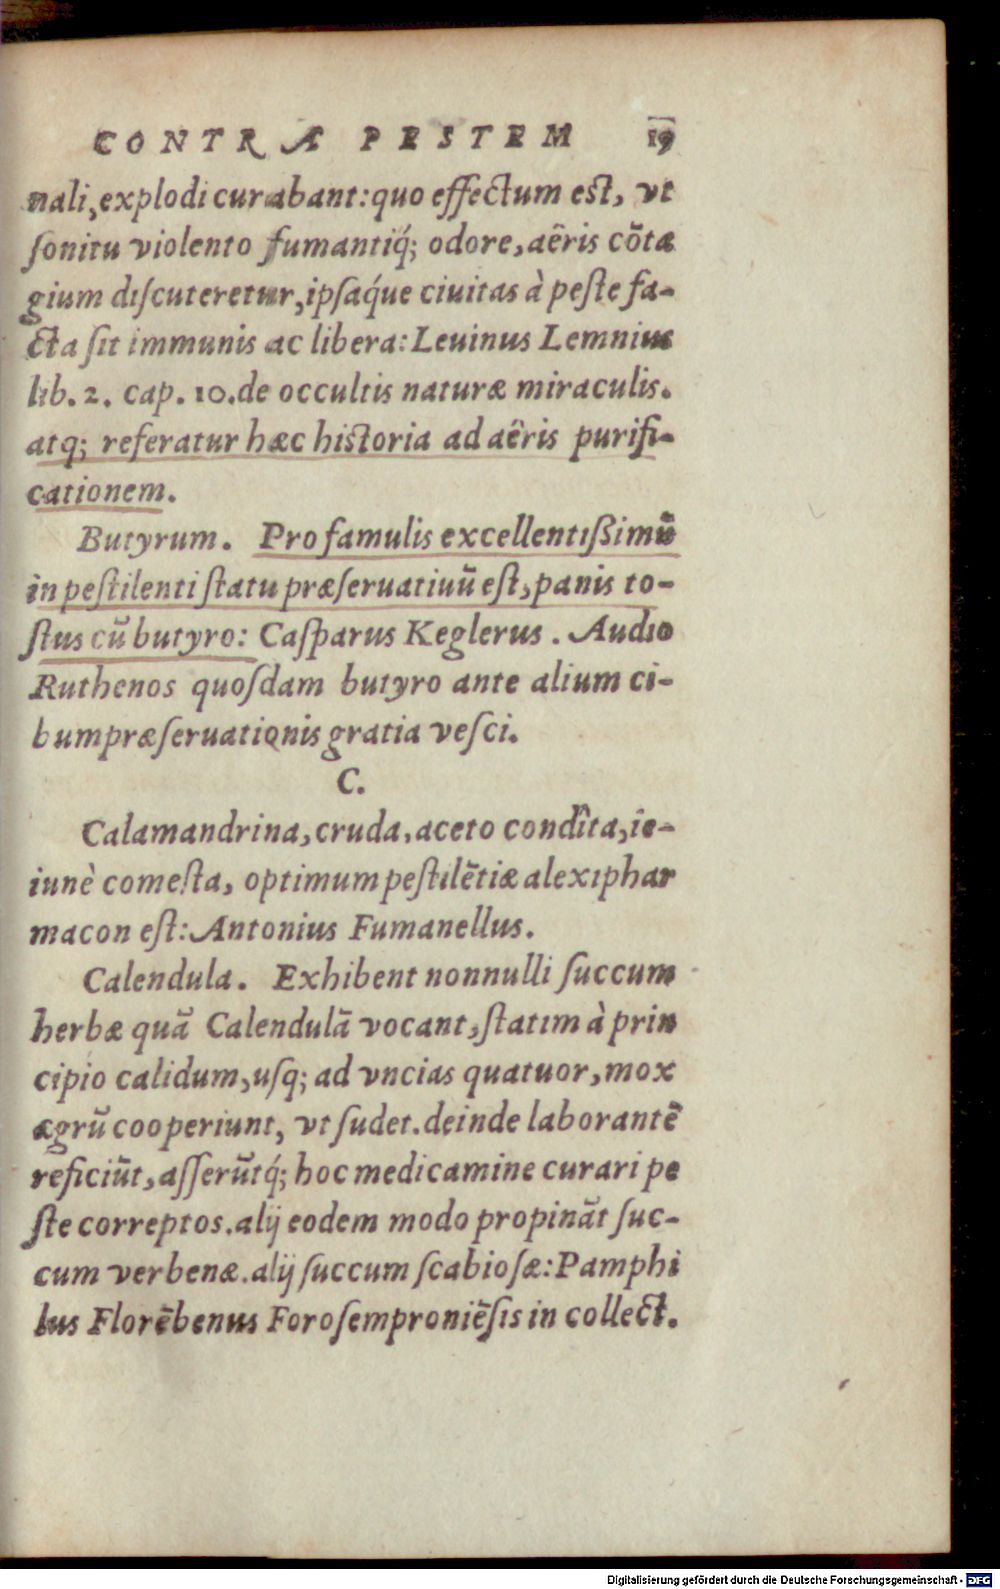 CONTRA PESTEM 19
nali, explodi curabant: quo effectum est, vt
ſonitu violento fumantiq́; odore, aëris cōta
gium diſcuteretur, ipſaq́ue ciuitas à peſte fa-
cta ſit immunis ac libera: Leuinus Lemnius
lib. 2. cap. 10. de occultis naturæ miraculis.
atq; referatur hæc historia ad aëris purifi-
cationem.
Butyrum. Pro famulis excellentißimū
in peſtilenti ſtatu præſeruatiuū eſt, panis to-
ſtus cū butyro: Caſparus Keglerus. Audio
Ruthenos quoſdam butyro ante alium ci-
bum præſeruationis gratia veſci.
C.
Calamandrina, cruda, aceto condita, ie-
iunè comeſta, optimum peſtilētiæ alexiphar
macon eſt: Antonius Fumanellus.
Calendula. Exhibent nonnulli ſuccum
herbæ quā Calendulā vocant, ſtatim à prin
cipio calidum, uſq; ad vncias quatuor, mox
ægrū cooperiunt, vt ſudet. deinde laborantē
reficiūt, aſſerūtq́; hoc medicamine curari pe
ſte correptos. alij eodem modo propināt ſuc-
cum verbenæ. alij ſuccum ſcabioſæ: Pamphi
lus Florēbenus Foroſemproniēſis in collect.
Digitalisierung gefördert durch die Deutsche Forschungsgemeinschaft - DFG